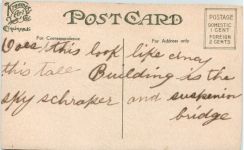 POST CARD
POSTAGE
DOMESTIC
1 CENT
FOREIGN
2 CENTS
For Correspondence
For Address only
Does this look like
this tall Building is the
sky schraper and suspenion
bridge